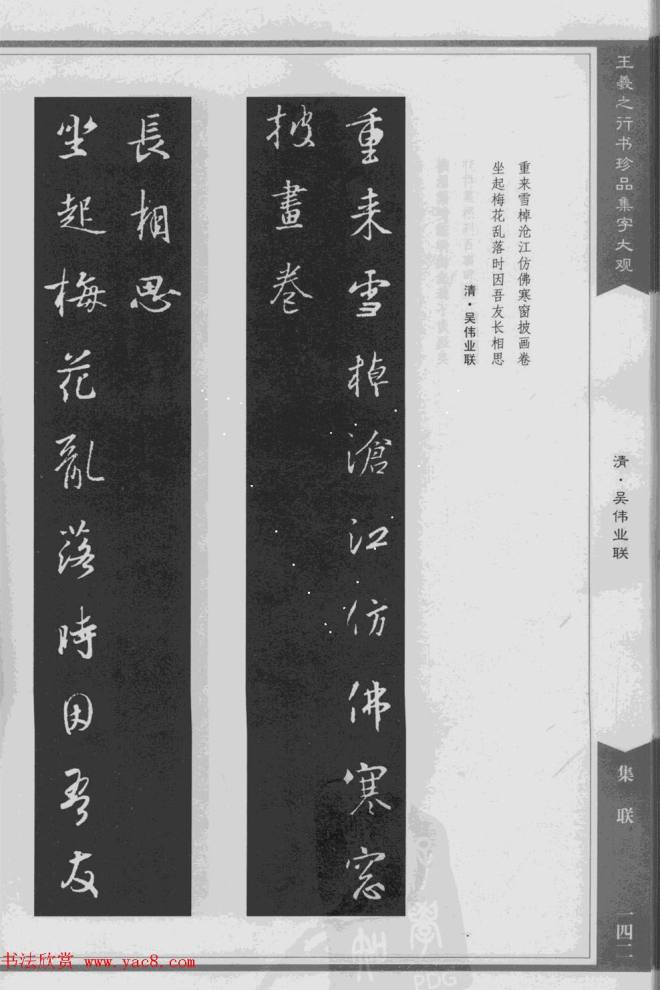 王羲之行书珍品集字大观
清·吴伟业联
集联
一四二
重来雪棹沧江仿佛寒窗披画卷
坐起梅花乱落时因吾友长相思
清·吴伟业联
重来雪棹滄江仿佛寒窓
披畫卷
坐起梅花亂落時因吾友
長相思
书法欣赏 www.yac8.com
PDG